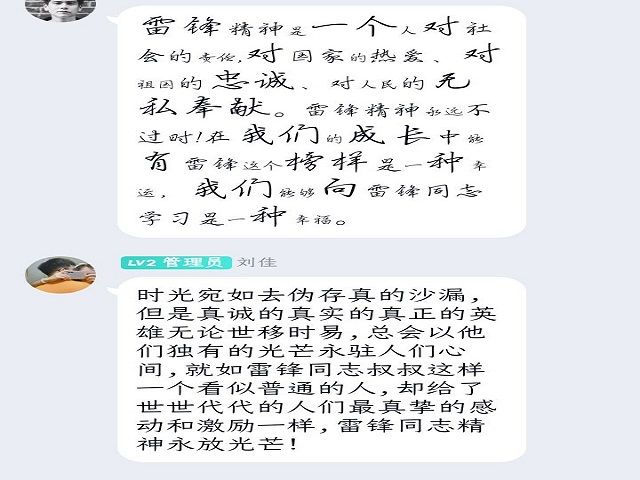 雷锋精神是一个人对社
会的责任,对国家的热爱、对
祖国的忠诚、对人民的无
私奉献。雷锋精神永远不
过时!在我们的成长中能
有雷锋这个榜样是一种幸
运,我们能够向雷锋同志
学习是一种幸福。
LV2 管理员 刘佳
时光宛如去伪存真的沙漏,
但是真诚的真实的真正的英
雄无论世移时易,总会以他
们独有的光芒永驻人们心
间,就如雷锋同志叔叔这样
一个看似普通的人,却给了
世世代代的人们最真挚的感
动和激励一样,雷锋同志精
神永放光芒!